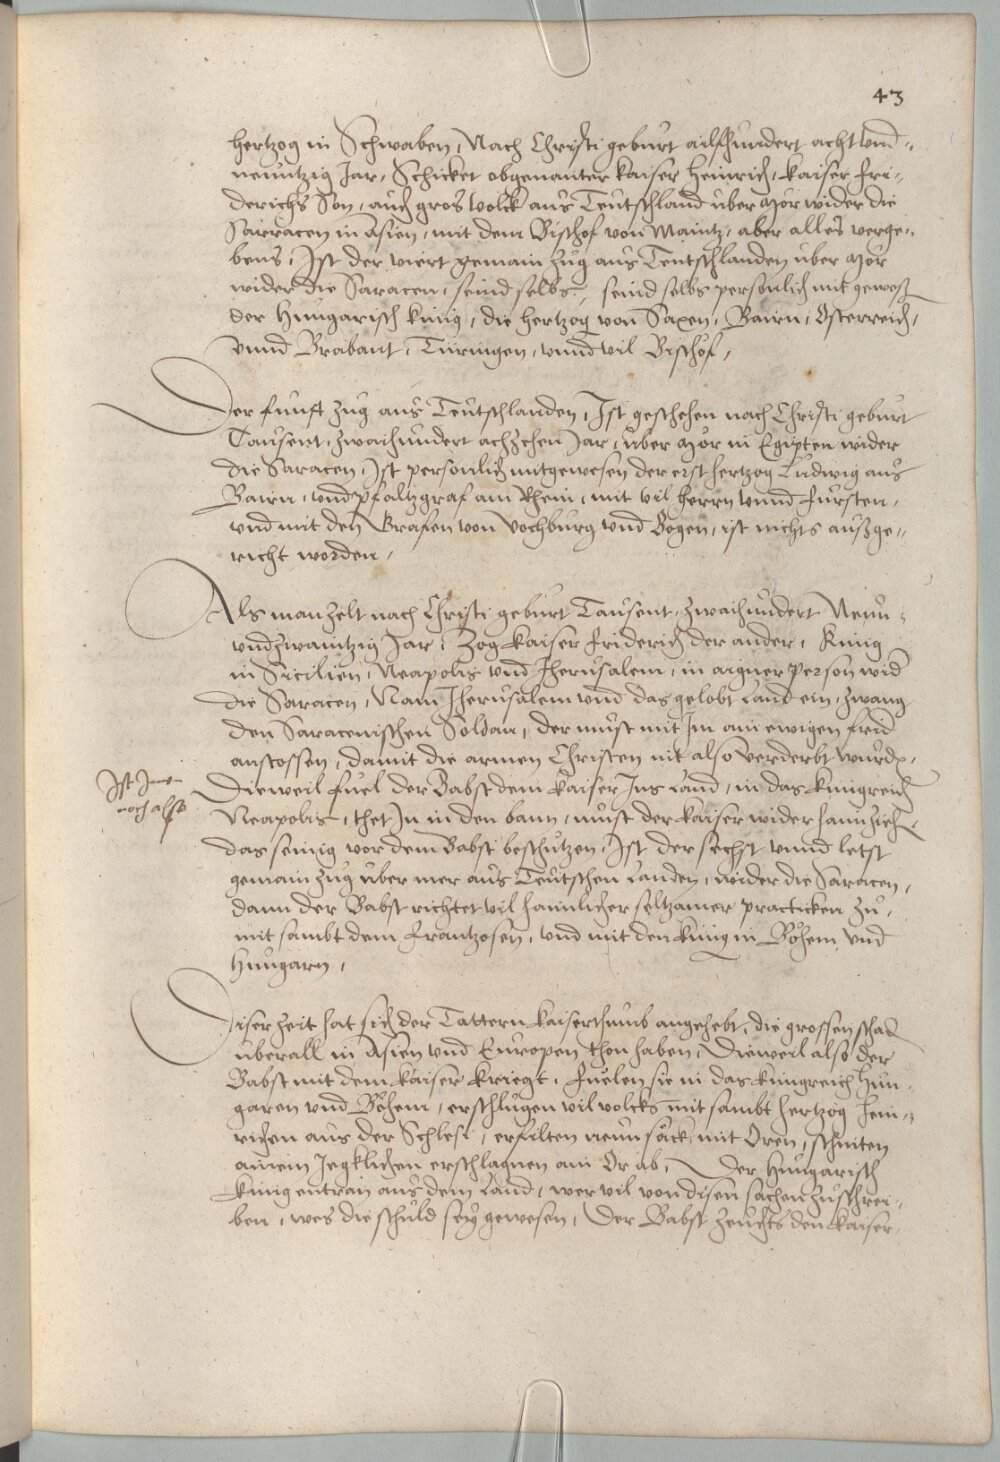 43
hertzog in Schwaben, Nach Christi geburt ailfhundert acht und=
neuntzig Jar, Schicket obgenanter kaiser Heinrich, kaiser Fri=
derichs Son, auch gros volck aus Teutschland uber mör wider die
Sarracen in Asien, mit dem Bischof von Maintz, aber alles verge=
bens, Ist der viert gemain zug aus Teutschlanden uber mör
wider die Saracen, seind selbs, seind selbs personlich mit gewest
der Hungarisch kunig, die hertzog von Saxen, Bairn, Osterreich,
vnnd Brabant, Türingen, vnnd vil Bischof,
Der funft zug aus Teutschlanden, Ist geschehen nach Christi geburt
Tausent, zwaihundert achzehen Jar, uber mör in Egipten wider
die Saracen, Ist personlich mitgewesen der erst hertzog Ludwig aus
Bairn, vnd pfaltzgraf am Rhein, mit vil herrn vnnd fursten,
vnd mit den Grafen von Vochburg vnd Bogen, ist nichts außge=
richt worden,
Als man zelt nach Christi geburt Tausent, zwaihundert Neun=
vndzwaintzig Jar, Zog kaiser Friderich der ander, Kunig
in Sicilien, Neapolis vnd Jherusalem, in aigner person wid
die Saracen, Nam Jherusalem vnd das gelobt Land ein, zwang
den Saracenischen Soldan, der must mit Im ain ewigen frid
anstossen, damit die armen Christen nit also verderbt wurdn,
Dieweil fuel der Babst dem kaiser Ins Land, in das kunigreich
Ist Im
noch also
Neapolis, thet In in den bann, must der kaiser wider haim zieh
das seinig vor dem Babst beschutzen, Ist der sechst vnnd letst
gemain zug uber mer aus Teutschen Landen, wider die Saracen,
dann der Babst richtet vil haimlicher seltzamer practicken zu,
mit sambt dem Frantzosen, vnd mit den kunig in Böhem vnd
Hungarn,
Diser zeit hat sich der Tattern kaiserthumb angehebt, die grossen schad
uberall in Asien vnd Europen thon haben, Dieweil also der
Babst mit dem kaiser kriegt, fuelen sie in das kunigreich Hun=
garen vnd Böhem, erschlugen vil volcks mit sambt hertzog Hein=
richen aus der Schlesi, erfilten neun säck mit Oren, schniten
ainem Jegklichen erschlagnen ain Or ab, Der Hungarisch
kunig entran aus dem Land, wer vil von disen sachen zuschrei=
ben, wes die schuld sey gewesen, Der Babst zeuchts den kaiser,